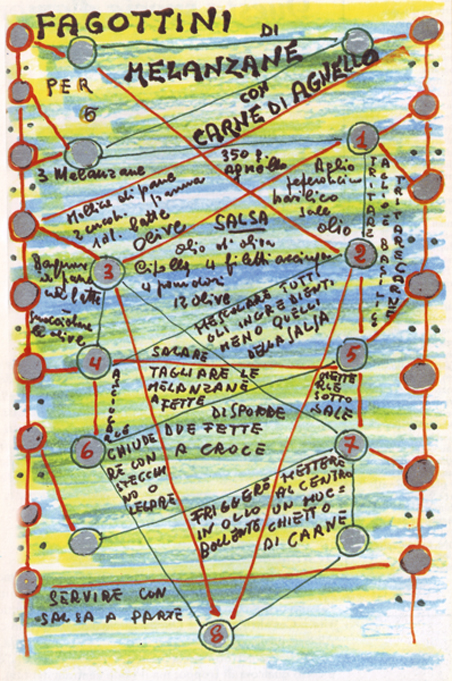 FAGOTTINI
DI
MELANZANE
CON
CARNE DI AGNELLO
PER
6
1
3 Melanzane
350 g.
Agnello
Mollica di pane
panna
1 dl. latte
Olive
Aglio
basilico
sale
olio
TRITARE
AGLIO E BASILIC
TRITARE CARNE
SALSA
olio d'oliva
Cipolla 4 filetti acciuga
4 pomodori
12 olive
3
2
nel latte
le olive
MESCOLARE TUTTI
GLI INGREDIENTI
MENO QUELLI
DELLA SALSA
4
5
SALARE
TAGLIARE LE
MELANZANE
A FETTE
METTE
RLE
SOTTO
SALE
ASCIUGARLE
DISPORRE
DUE FETTE
A CROCE
6
7
CHIUDE
RE CON
STECCHI
NO O
LEGARE
METTERE
AL CENTRO
UN MUC=
CHIETTO
DI CARNE
FRIGGERE
IN OLIO
BOLLENTE
SERVIRE CON
SALSA A PARTE
8